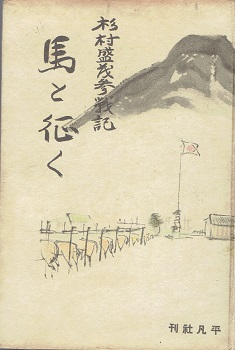 杉村盛茂参戦記
馬と征く
平凡社刊